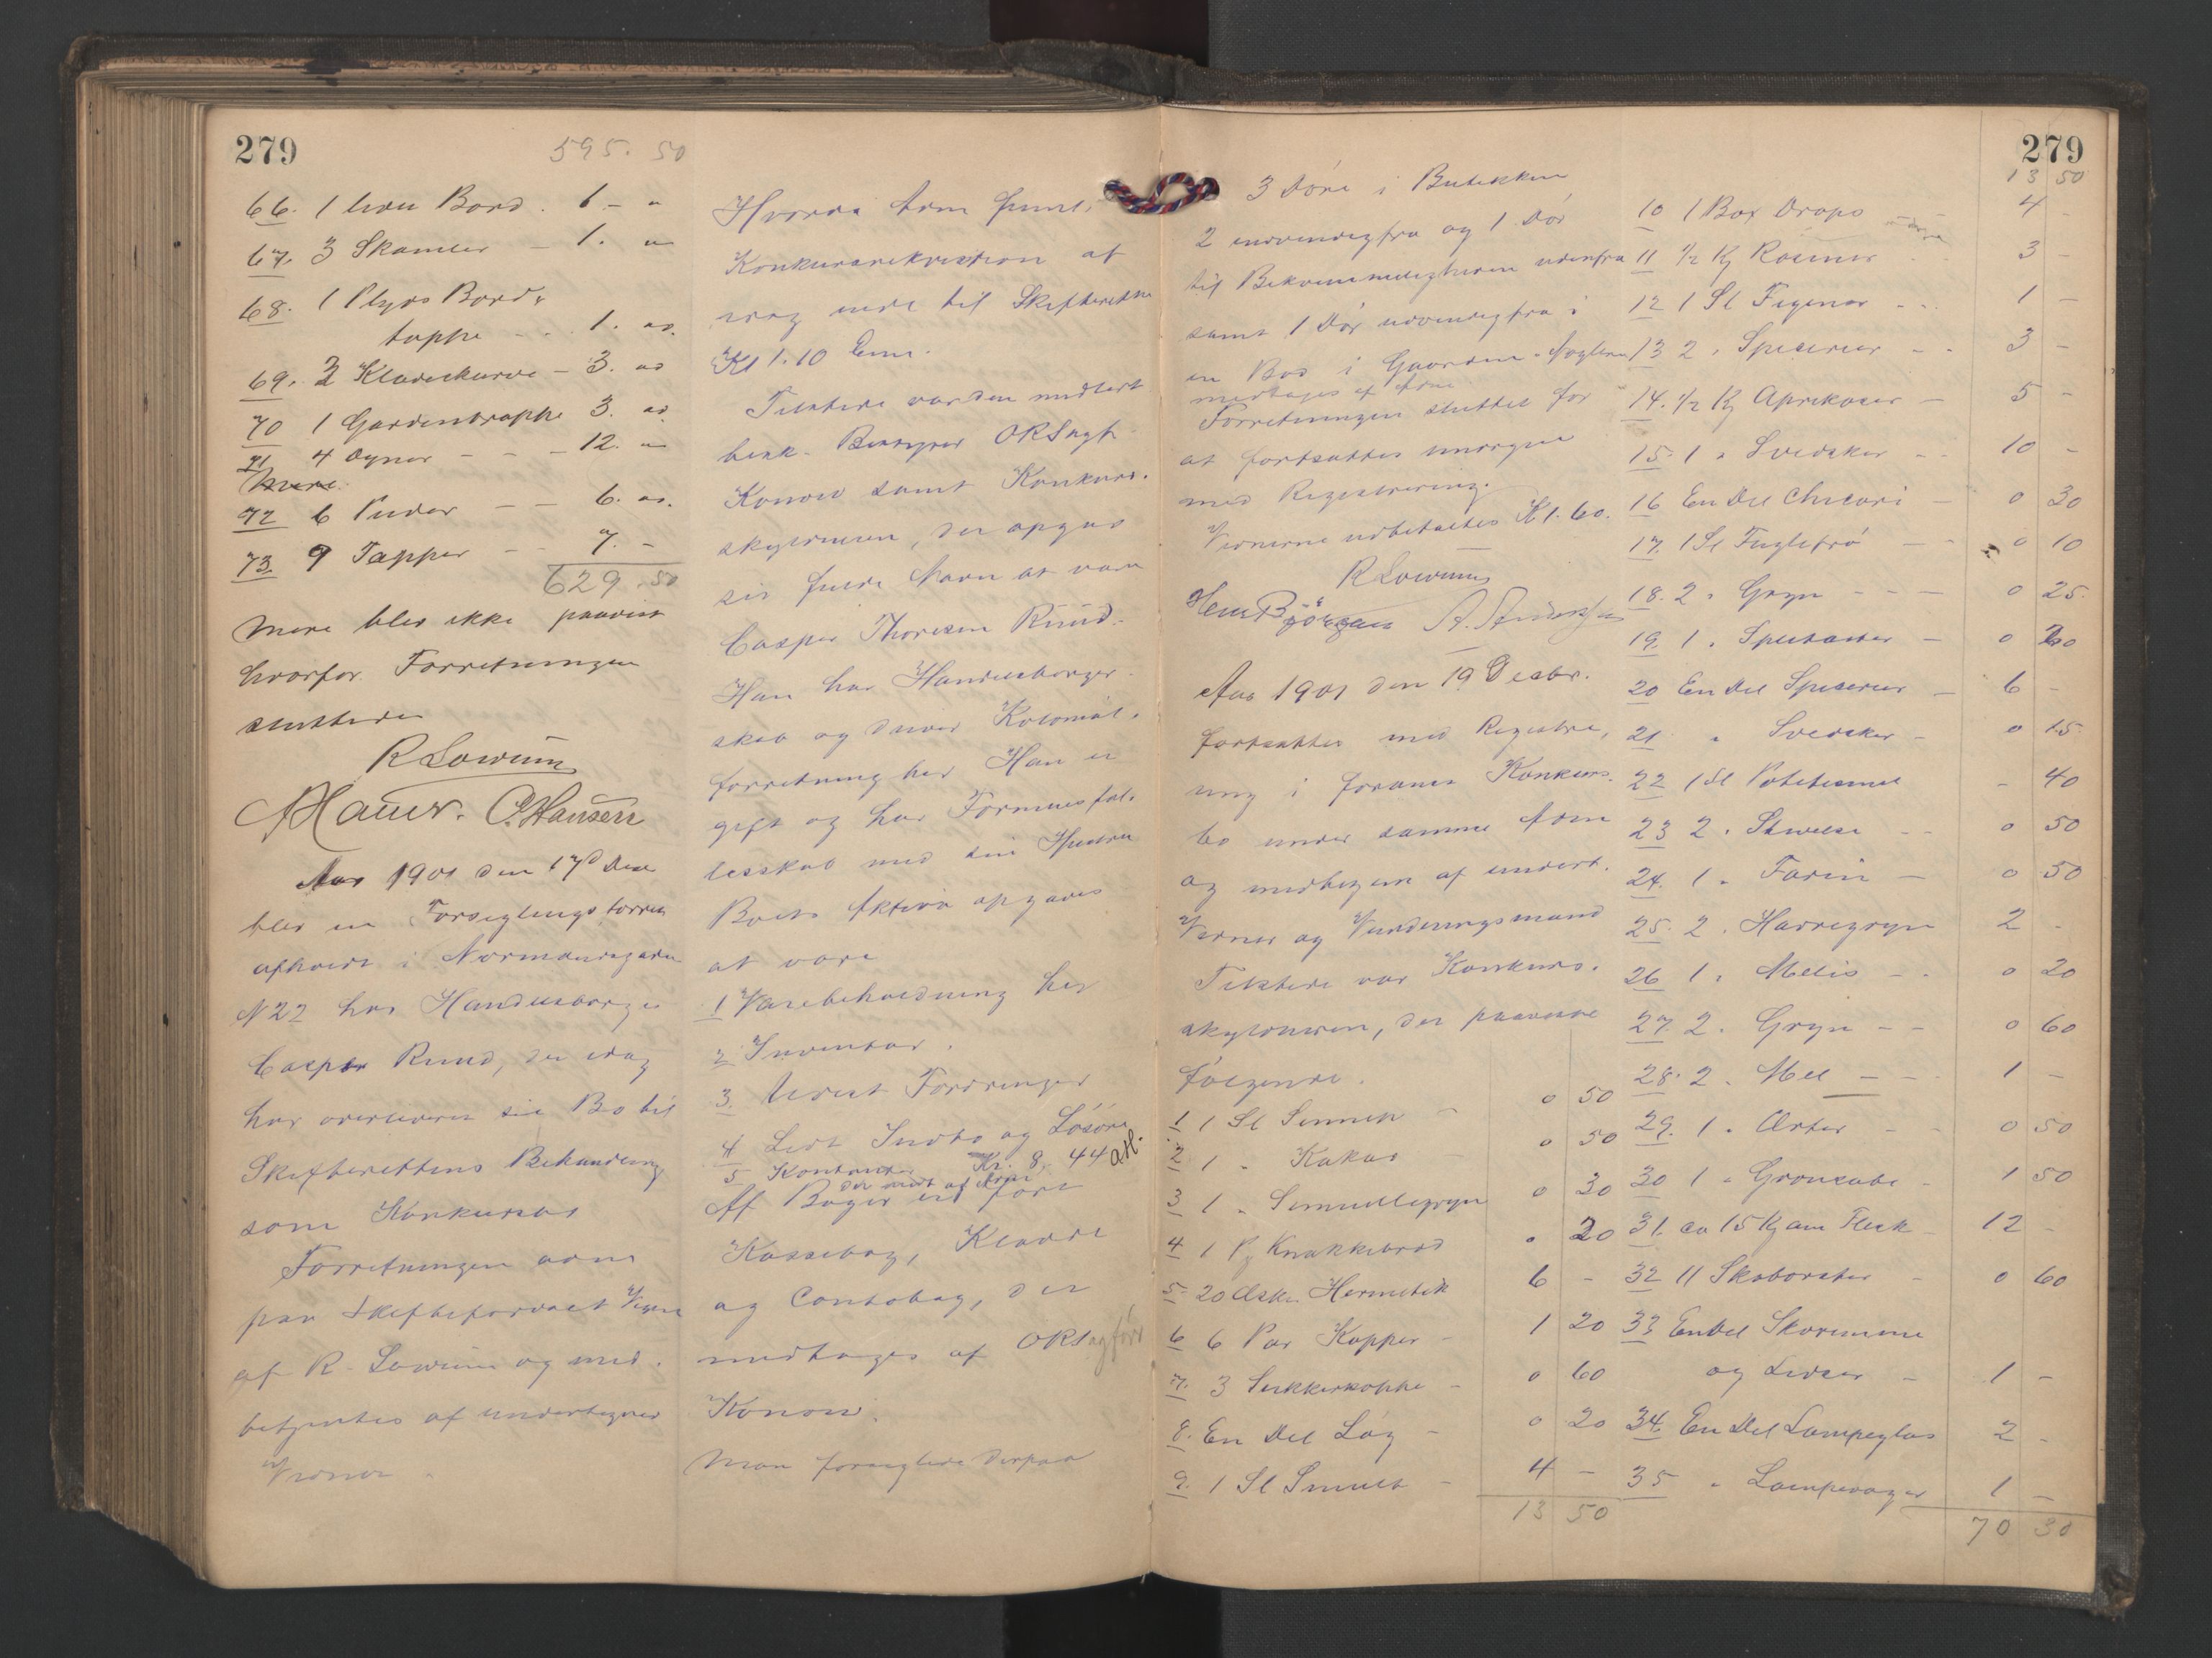 279
595. 50
66. 1 liden Bord . 6 - "
67. 3 Skamler - 1. "
68. 1 Plyds Bord-
tæppe - - 1. "
69. 2 Klædeskurve - 3. "
70 1 Gardentrappe 3. "
71 4 Dyner - - - 12. "
72 6 Puder - - 6. "
73. 9 Tæpper - - 7. -
629.50
Mere blev ikke paavist
hvorfor Forretningen
sluttedes
R Lowum
C. Hansen
Aar 1901 den 17d Dece
blev en Forseglingsforretn
afholdt i Normandsgaden
N 22 hos Handelsborger
Casper Ruud, der idag
har overleveret sit Bo til
Skifterettens Behandling
som Konkursbo
Forretningen
paa Skifteforvalt Vegne
af R. Lowum og med-
betjentes af undertegned
Vidner.
Hvorda Adm freml.
Konkursrekvisition af
idag indl til Skifteretten
Kl 1.10 Em.
Tilstede var den midlert
best. Bestyrer ORSagf
Konow samt Konkurs-
skyldneren, der opgav
sit fulde Navn at være
Casper Thoresen Ruud.
Han har Handelsborger-
skab og driver Kolonial-
forretning her Han er
gift og har Formuesfæl-
lesskab med sin Hustru
Boets Aktiva opgaves
at være
1 Varebeholdning her
2 Inventar.
3. Udest Fordringer
4 Lidt Indbo og Løsøre
5 Kontanter Kr. 8, 44
der medt af Adm
Af Bøger er ført
Kassebog, Kladde
og Contobog, der
medtages af ORSagfør
Konow.
Man forseglede derpaa
3 Døre i Butikken
2 indvendig fra og 1 Dør
til Bekvemmeligheden udenfra
samt 1 Dør udvendig fra i
en Bod i Gaarden - Nøglene
medtages af Adm
Forretningen sluttet for
at fortsættes imorgen
med Registrering.
Vidnerne udbetaltes K 1.60.
R Lowum
Aar 1901 den 19 Decbr.
fortsattes med Registre-
ring i foran Konkurs-
bo under samme Adm
og medbetjen af undert.
Vidner og Vurderingsmænd
Tilstede var Konkurs-
skyldneren, der paaviste
følgende.
1 1 Sl Sennep - 0 50
2 1 " Kakao - 0 50
3 1 " Semullegryn 0 30
4 1 Pg Knækkebrød " 20
5. 20 Æsker Hermetik 6 -
6 6 Par Kopper - 1 20
7. 3 Sukkerkopper - 0 60
8. En Del Løg - 0 20
9. 1 Sl Smult - 4 -
13 50
279
13 50
10 1 Box Drops - 4 -
11 1/2 Kg Rosiner - 3 -
12 1 Sl Figener - - 1 -
13 2 " Specerier - - 3 -
14. 1/2 Kg Aprikoser - 5 -
15. 1 " Svedsker - - 10 -
16 En Del Chicori - 0 30
17. 1 Sl Fuglefrø - - 0 10
18. 2 " Gryn - - - 0 25.
19. 1 " - 0 20
20 En Del Specerier - 6 -
21 " Svedsker - 0 15
22 1 Sl Potetesmel - 40
23 2 " Stivelse - - 0 50
24. 1 " Farin - 0 50
25. 2 " Havregryn 2 -
26 1 " Melis - - 0 20
27. 2 " Gryn - - 0 60
28. 2 " Mel - - 1 -
29. 1 " Ærter - - 0 50
30 1 " Grønsæbe - 1 50
31. ca 15 Kg am Flesk - 12 -
32 11 Skobørster - 0 60
33 En Del Skoremme
og Lidser - 1 -
34. En Del Lampeglas 2 -
35 " Lampevæger 1 -
70 30